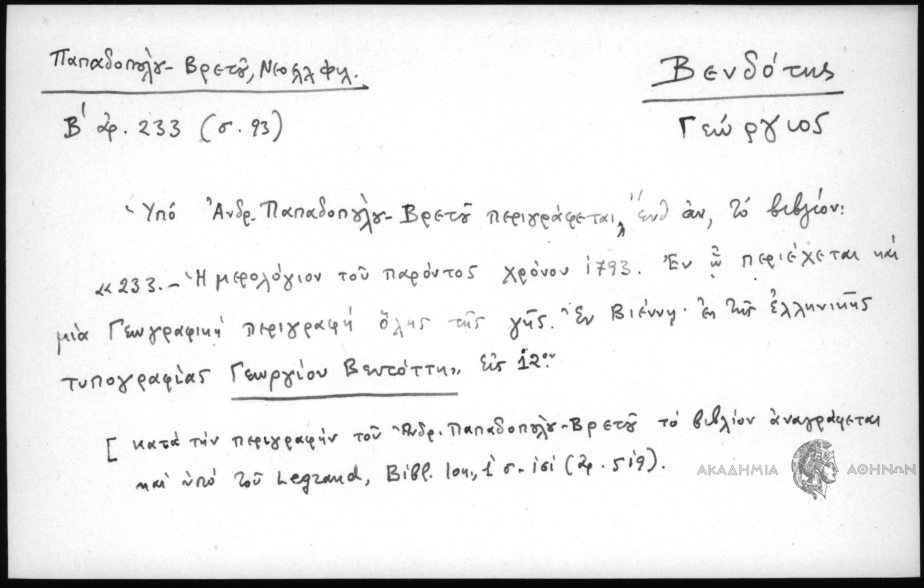 Παπαδοπούλου-Βρετοῦ, Νεοελλ φιλ.
Β΄ ἀρ. 233 (σ. 93)
Βενδότης
Γεώργιος
Ὑπό Ἀνδρ. Παπαδοπούλου-Βρετοῦ περιγράφεται, ἔνθ ἀν, τό βιβλίον:
«233.- Ἡμερολόγιον τοῦ παρόντος χρόνου 1793. Ἐν ᾧ περιέχεται καί
μία Γεωγραφική περιγραφή ὅλης τῆς γῆς. Ἐν Βιέννῃ. Ἐκ τῆς ἑλληνικῆς
τυπογραφίας Γεωργίου Βεντόττη». Εἰς 12ον.
[ κατά τήν περιγραφήν τοῦ Ἀνδρ. Παπαδοπούλου-Βρετοῦ τό βιβλίον ἀναγράφεται
καί ὑπό τοῦ Legrand, Βίβλ. Ιον, 1 σ. (ἀρ. 519).
ΑΚΑΔΗΜΙΑ ΑΘΗΝΩΝ